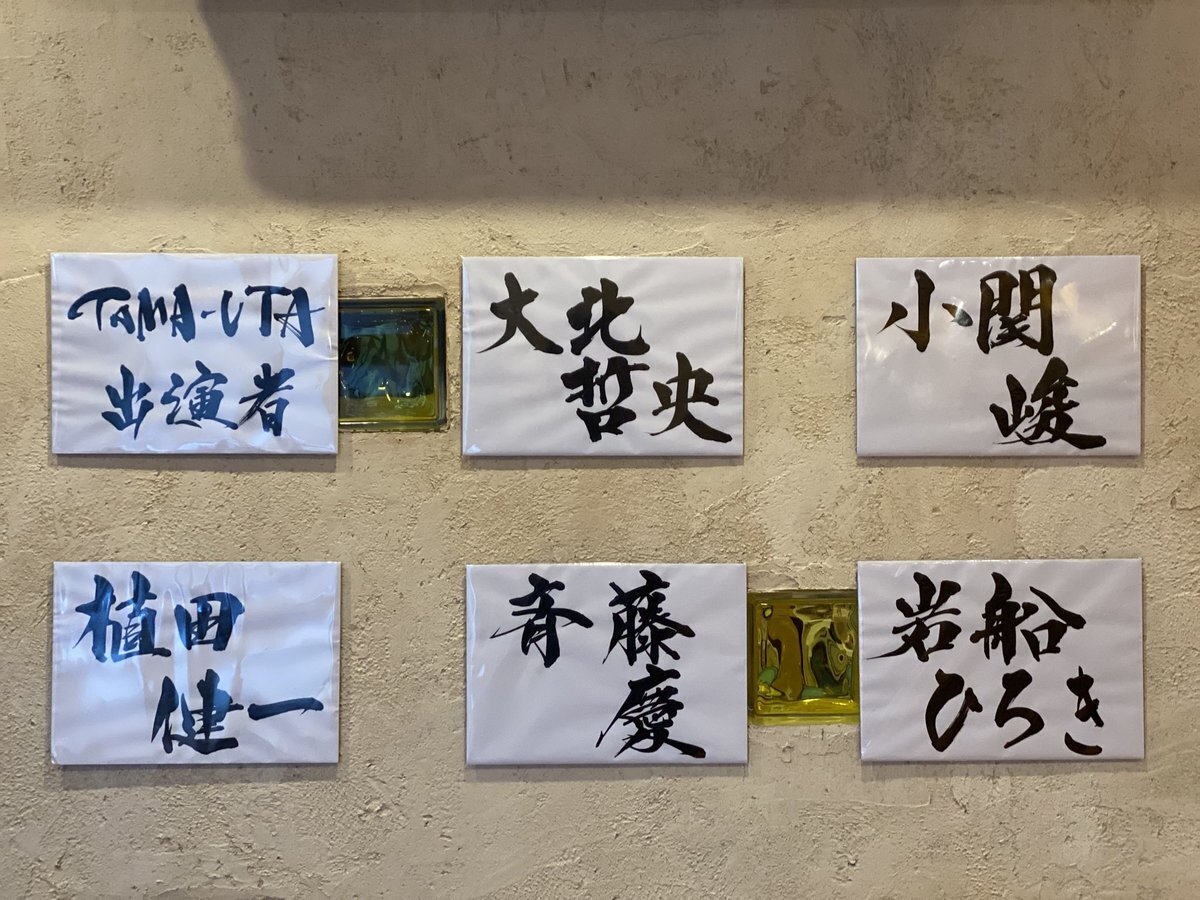 TAMA-UTA
出演者
大北
哲央
小関
峻
植田
健一
斉藤
慶
岩船
ひろき